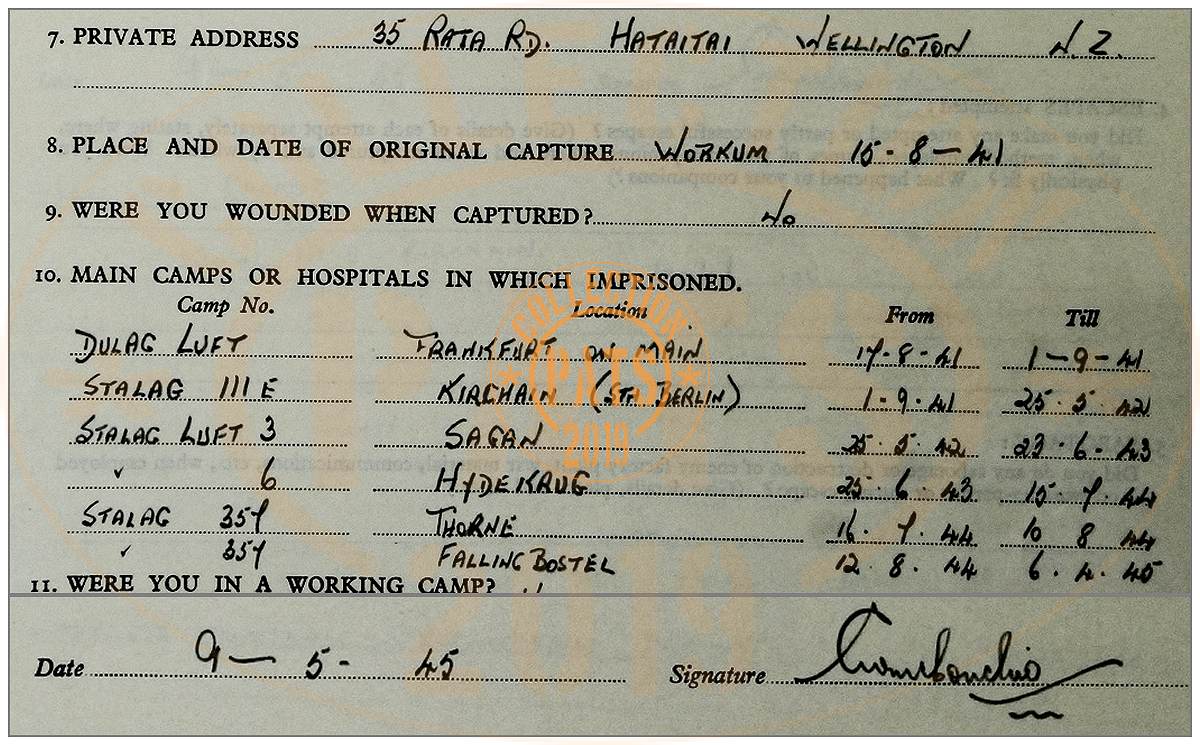 7. PRIVATE ADDRESS 35 RATA RD. HATAITAI WELLINGTON N.Z.
8. PLACE AND DATE OF ORIGINAL CAPTURE WORKUM 15-8-41
9. WERE YOU WOUNDED WHEN CAPTURED? No
10. MAIN CAMPS OR HOSPITALS IN WHICH IMPRISONED.
Camp No. Location From Till
DULAG LUFT FRANKFURT ON MAIN 17-8-41 1-9-41
STALAG III E KIRCHAIN (STH BERLIN) 1-9-41 25.5.42
STALAG LUFT 3 SAGAN 25.5.42 23-6-43
✓ 6 HYDEKRUG 25.6.43 15.7.44
STALAG 357 THORNE 16.7.44 10 8 44
✓ 357 FALLINGBOSTEL 12.8.44 6.4.45
11. WERE YOU IN A WORKING CAMP?
Date 9-5-45 Signature
COLLECTION
PATS
2019